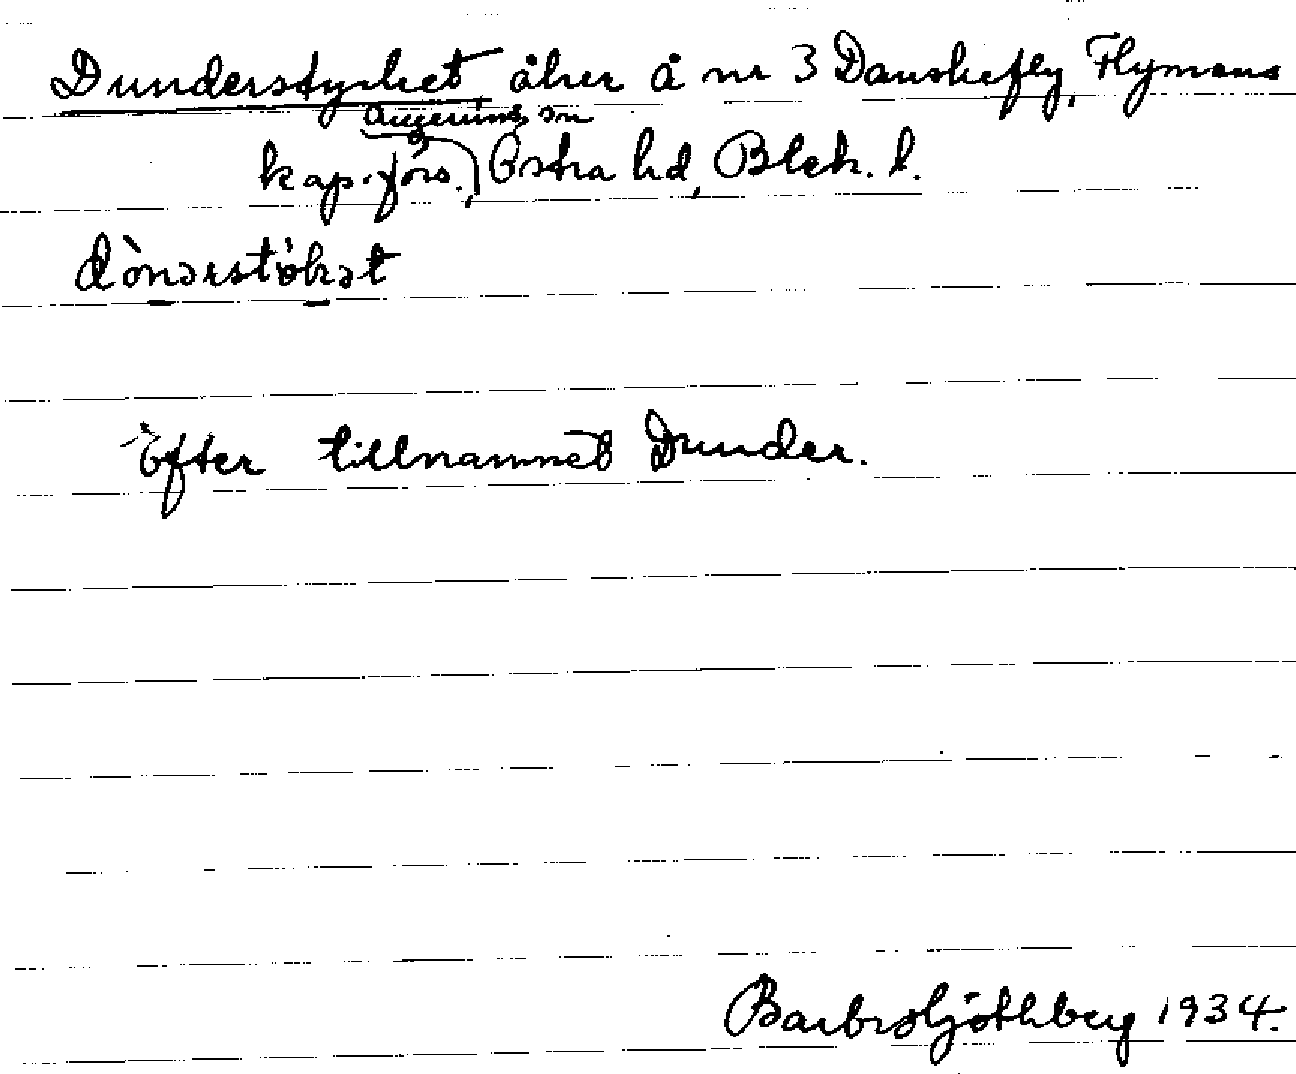 Dunderstycket, åker å nr 3 Danskefly, Flymens
Augerums sn
kap.förs., Östra hd, Blek. l.
dònərstö̀kət
Efter tillnamnet Dunder.
Barbro Ljöthberg 1934.